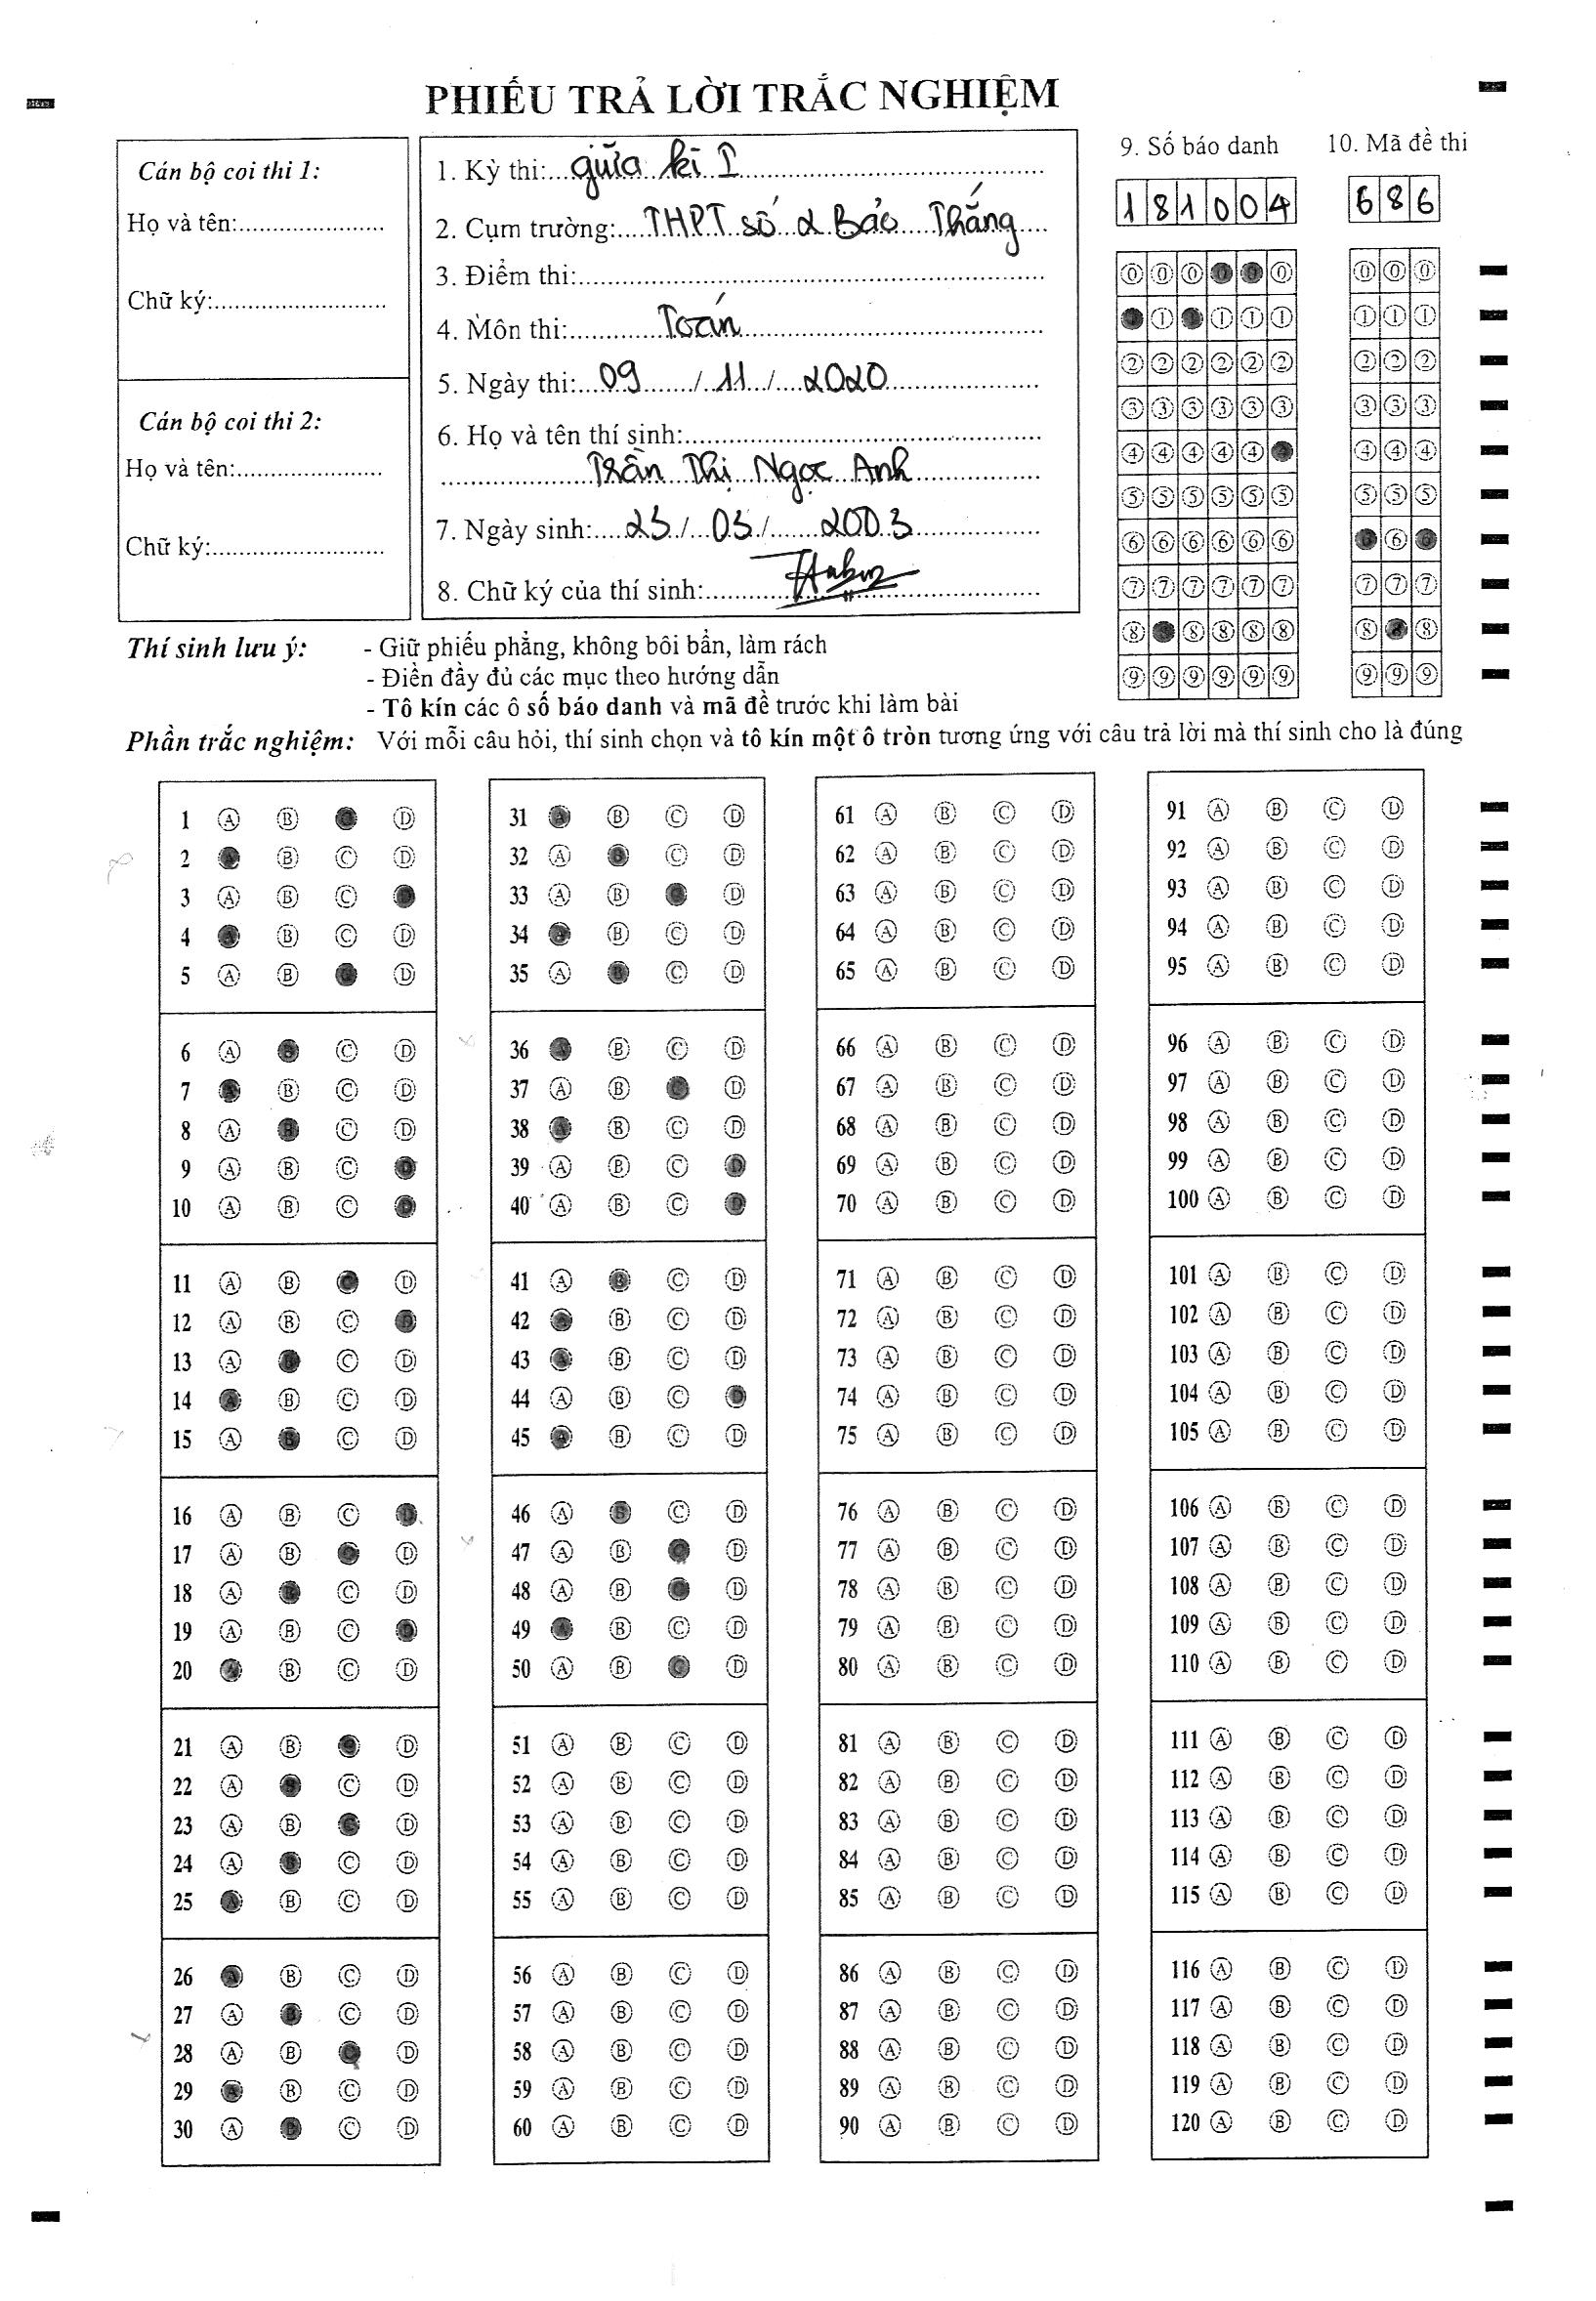 PHIẾU TRẢ LỜI TRẮC NGHIỆM
Cán bộ coi thi 1:
Họ và tên:......................
Chữ ký:..........................
Cán bộ coi thi 2:
Họ và tên:......................
Chữ ký:..........................
1. Kỳ thi: giữa kì I
2. Cụm trường: THPT số 2 Bảo Thắng
3. Điểm thi:
4. Môn thi: Toán
5. Ngày thi: 09 / 11 / 2020
6. Họ và tên thí sinh:
Trần Thị Ngọc Anh
7. Ngày sinh: 23 / 03 / 2003
8. Chữ ký của thí sinh:
9. Số báo danh
181004
10. Mã đề thi
686
0 0 0 0 0 0 0 0 0
1 1 1 1 1 1 1 1 1
2 2 2 2 2 2 2 2 2
3 3 3 3 3 3 3 3 3
4 4 4 4 4 4 4 4 4
5 5 5 5 5 5 5 5 5
6 6 6 6 6 6 6 6 6
7 7 7 7 7 7 7 7 7
8 8 8 8 8 8 8 8 8
9 9 9 9 9 9 9 9 9
Thí sinh lưu ý: - Giữ phiếu phẳng, không bôi bẩn, làm rách
- Điền đầy đủ các mục theo hướng dẫn
- Tô kín các ô số báo danh và mã đề trước khi làm bài
Phần trắc nghiệm: Với mỗi câu hỏi, thí sinh chọn và tô kín một ô tròn tương ứng với câu trả lời mà thí sinh cho là đúng
1 A B C D
2 A B C D
3 A B C D
4 A B C D
5 A B C D
6 A B C D
7 A B C D
8 A B C D
9 A B C D
10 A B C D
11 A B C D
12 A B C D
13 A B C D
14 A B C D
15 A B C D
16 A B C D
17 A B C D
18 A B C D
19 A B C D
20 A B C D
21 A B C D
22 A B C D
23 A B C D
24 A B C D
25 A B C D
26 A B C D
27 A B C D
28 A B C D
29 A B C D
30 A B C D
31 A B C D
32 A B C D
33 A B C D
34 A B C D
35 A B C D
36 A B C D
37 A B C D
38 A B C D
39 A B C D
40 A B C D
41 A B C D
42 A B C D
43 A B C D
44 A B C D
45 A B C D
46 A B C D
47 A B C D
48 A B C D
49 A B C D
50 A B C D
51 A B C D
52 A B C D
53 A B C D
54 A B C D
55 A B C D
56 A B C D
57 A B C D
58 A B C D
59 A B C D
60 A B C D
61 A B C D
62 A B C D
63 A B C D
64 A B C D
65 A B C D
66 A B C D
67 A B C D
68 A B C D
69 A B C D
70 A B C D
71 A B C D
72 A B C D
73 A B C D
74 A B C D
75 A B C D
76 A B C D
77 A B C D
78 A B C D
79 A B C D
80 A B C D
81 A B C D
82 A B C D
83 A B C D
84 A B C D
85 A B C D
86 A B C D
87 A B C D
88 A B C D
89 A B C D
90 A B C D
91 A B C D
92 A B C D
93 A B C D
94 A B C D
95 A B C D
96 A B C D
97 A B C D
98 A B C D
99 A B C D
100 A B C D
101 A B C D
102 A B C D
103 A B C D
104 A B C D
105 A B C D
106 A B C D
107 A B C D
108 A B C D
109 A B C D
110 A B C D
111 A B C D
112 A B C D
113 A B C D
114 A B C D
115 A B C D
116 A B C D
117 A B C D
118 A B C D
119 A B C D
120 A B C D